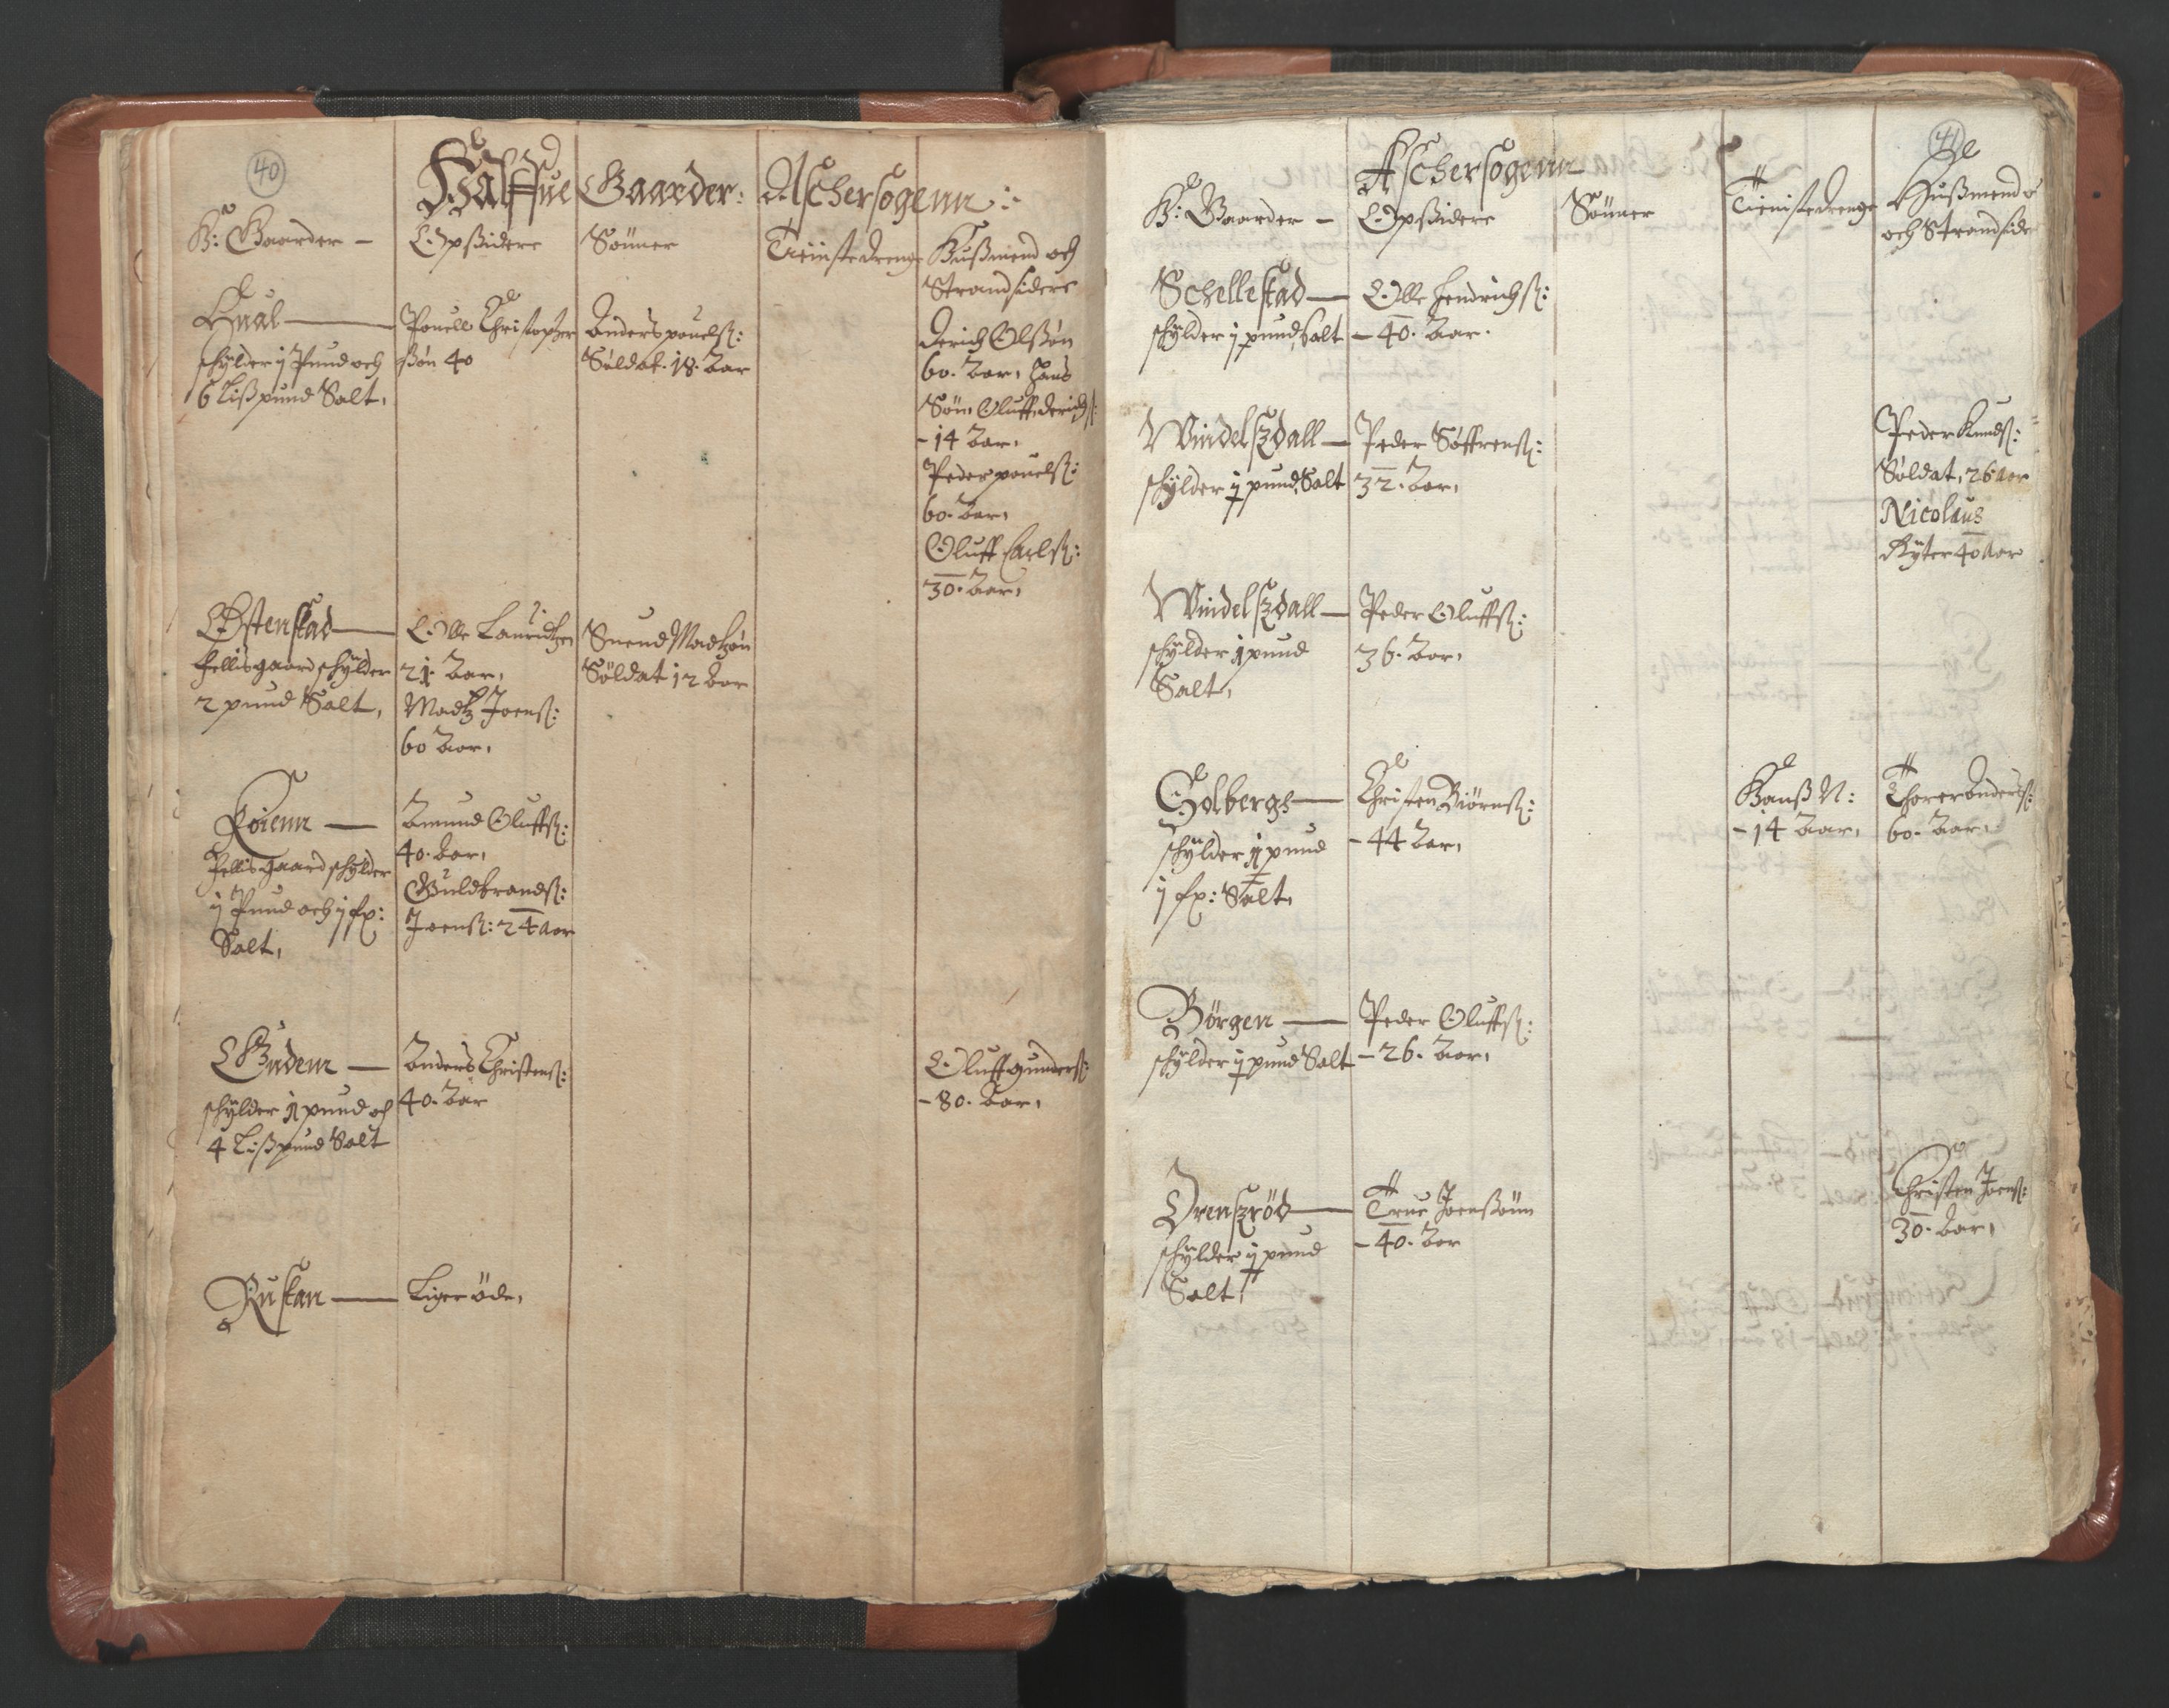 40
Halffue Gaarder: Aschersogenn:
H: Gaarder –
Opßidere
Sönner
Tienistedrenge
Hußmend och
Strandsidere
Hual
schylder j Pund och
6 Lißpund Salt,
Pouell Christopher
ßøn 40
Anders pouelß:
Soldat. 18. Aar
Derich Olßøn
60. Aar, hans
Søn, Oluff derichß:
- 14 Aar,
Peder pouelß:
60. Aar,
Oluff Carlß:
30. Aar,
Østenstad
fellisgaard schylder
2 pund Salt,
Olle Lauridtzen
21. Aar,
Madtz Joenß:
60 Aar,
Suend Madtzøn
Søldat 12 Aar
Roienn
fellisgaard schylder
j Pund och j fp:
Salt,
Amund Oluffß:
40. Aar,
Guldbrandß:
Joenß: 24 Aar
Gudem
schylder j pund och
4 Lißpund Salt
Anders Christenß:
40. Aar
Oluff gunderß:
- 80. Aar,
Rustan
Liger øde,
41
Aschersogenn
H: Gaarder –
Opßidere
Sönner
Tienistedrenge
Hußmend
och Strandside
Schellestad
schylder j pund Salt
Olle Hendrichß:
- 40. Aar.
Windelszdall
schylder j pund Salt
Peder Søffrenß:
32. Aar,
Peder Knudß:
Søldat, 26 Aar
Nicolaus
Ryter 40 Aar
Windelszdall
schylder j pund
Salt,
Peder Oluffß:
36. Aar,
Solbergs
schylder j pund
j fp: Salt,
Christen Biørnß:
- 44 Aar,
Hanß N:
- 14 Aar,
Thorer Anderß:
60. Aar,
Børgen
schylder j pund Salt
Peder Oluffß:
- 26. Aar,
Orenszrød
schylder j pund
Salt,
True Joenßønn
- 40. Aar
Christen Joenß:
30. Aar,